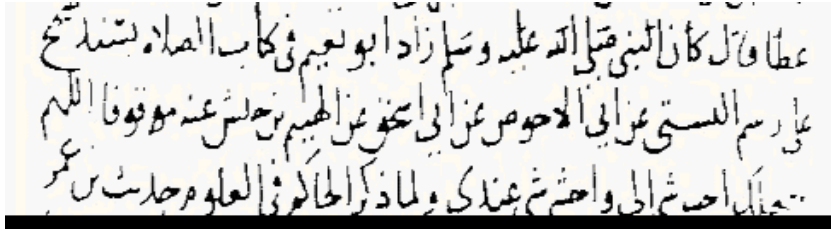 عطا قال كان النبي صلى الله عليه وسلم زاد ابو نعيم في كتاب الصلاه بسند صحيح
على رسم البستي عن ابي الاحوص عن ابي اسحق عن الهيثم بن حنش عنه موقوفا اللهم
احب شي الي واخشى شي عندى ولما ذكر الحاكم في العلوم حديث بن عمر